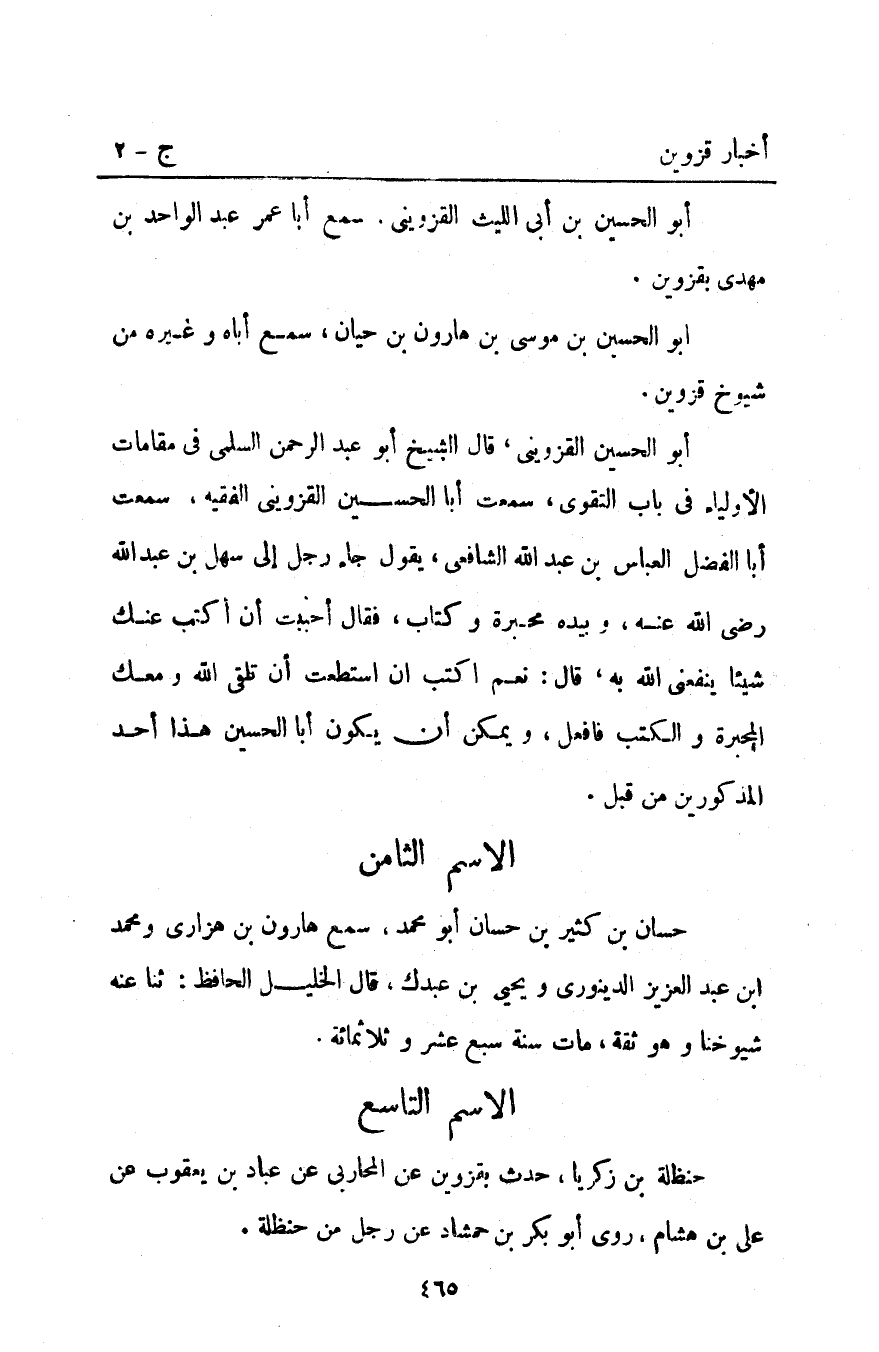 أخبار قزوين ج - ٢
أبو الحسين بن أبى الليث القزوينى. سمع أبا عمر عبد الواحد بن
مهدى بقزوين .
ابو الحسين بن موسى بن هارون بن حيان، سمـع أباه و غـيره من
شيوخ قزوين.
أبو الحسين القزوينى، قال الشيخ أبو عبد الرحمن السلمى فى مقامات
الأولياء فى باب التقوى، سمعت أبا الحســـين القزوينى الفقيه، سمعت
أبا الفضل العباس بن عبد الله الشافعى، يقول جاء رجل إلى سهل بن عبدالله
رضى الله عنـه، و بيده محـبرة و كتاب، فقال أحببت أن أكتب عنـك
شيئا ينفعنى الله به، قال: نعـم اكتب ان استطعت أن تلقى الله و معـك
المحبرة و الكتب فافعل، و يمكن أن يكون أبا الحسين هـذا أحـد
المذكورين من قبل .
الاسم الثامن
حسان بن كثير بن حسان أبو محمد، سمع هارون بن هزارى ومحمد
ابن عبد العزيز الدينورى و يحيى بن عبدك، قال الخليـــل الحافظ: ثنا عنه
شيوخنا و هو ثقة، مات سنة سبع عشر و ثلاثمائة .
الاسم التاسع
حنظلة بن زكريا، حدث بقزوين عن المحاربى عن عباد بن يعقوب عن
على بن هشام، روى أبو بكر بن حمشاد عن رجل من حنظلة .
٤٦٥